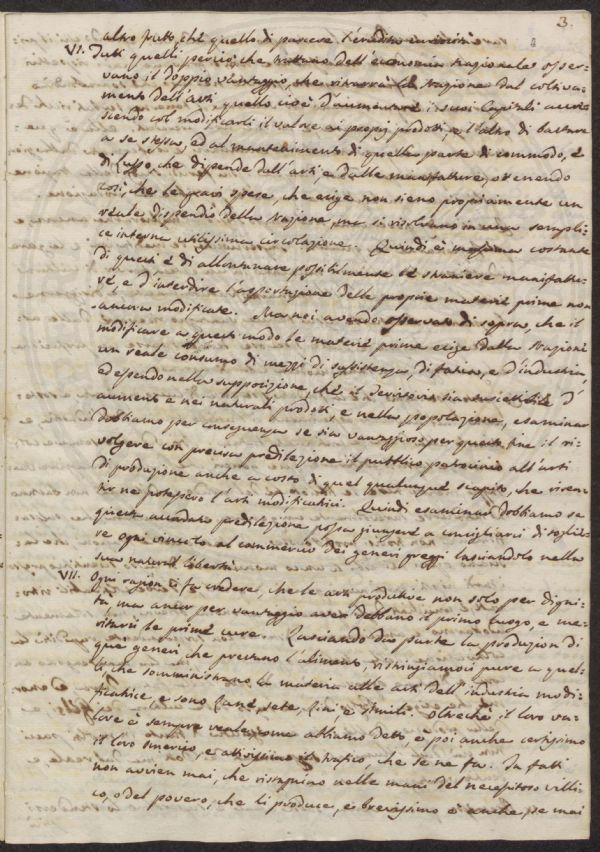 3.
altro frutto, che quello di pascere l'erudita curiosità.
VI. Tutti quelli perciò, che trattano dell'economia nazionale osser-
vano il doppio vantaggio, che ritrarrà la Nazione dal coltiva-
mento dell'arti, quello cioè d'aumentare i suoi Capitali accre-
scendo col modificarli il valore ai proprj prodotti, e l'altro di bastare
a se stessa, ed al mantenimento di quella parte di commodo, e
di lusso, che dipende dall'arti, e dalle manifatture, ottenendo
così, che le gravi spese, che esige non sieno propriamente un
reale dispendio della Nazione, ma si risolvano in una sempli-
ce interna utilissima circolazione. Quindi è massima costante
di questi è di allontanare possibilmente le straniere manifattu-
re, e d'interdire l'asportazione delle proprie materie prime non
ancora modificate. Ma noi avendo osservato di sopra, che il
modificare a questo modo le materie prime esige dalla Nazione
un reale consumo di mezzi di sussistenza, di fatica, e d'industria,
ed essendo nella supposizione che il Territorio sia suscettibile d'
aumenti e nei naturali prodotti, e nella popolazione, esaminar
dobbiamo per conseguenza se sia vantaggioso per questo fine il ri-
volgere con precisa predilezione il pubblico patrocinio all'arti
di produzione anche a costo di quel qualunque scapito, che risen-
tir ne potessero l'arti modificatrici. Quindi esaminar dobbiamo se
questa accordata predilezione possa giungere a consigliarci di toglie-
re ogni vincolo al commercio dei generi greggi lasciandolo nella
sua natural libertà.
VII. Ogni ragion ci fa credere, che le arti produttive non solo per digni-
tà, ma ancor per vantaggio aver debbano il primo luogo, e me-
ritarsi le prime cure. Lasciando da parte la produzion di
que' generi che prestano l'alimento, ristringiamoci pure a quel-
la che somministrano la materia alle arti dell'industria modi-
ficatrice, e sono Lane, sete, lini, e simili. Oltrechè il loro va-
lore è sempre reale, come abbiamo detto, è poi anche certissimo
il loro smercio, e attivissimo il trafico, che se ne fa. In fatti
non avvien mai, che ristagnino nelle mani del necessitoso villi-
co, o del povero, che li produce, e brevissimo è anche, se mai